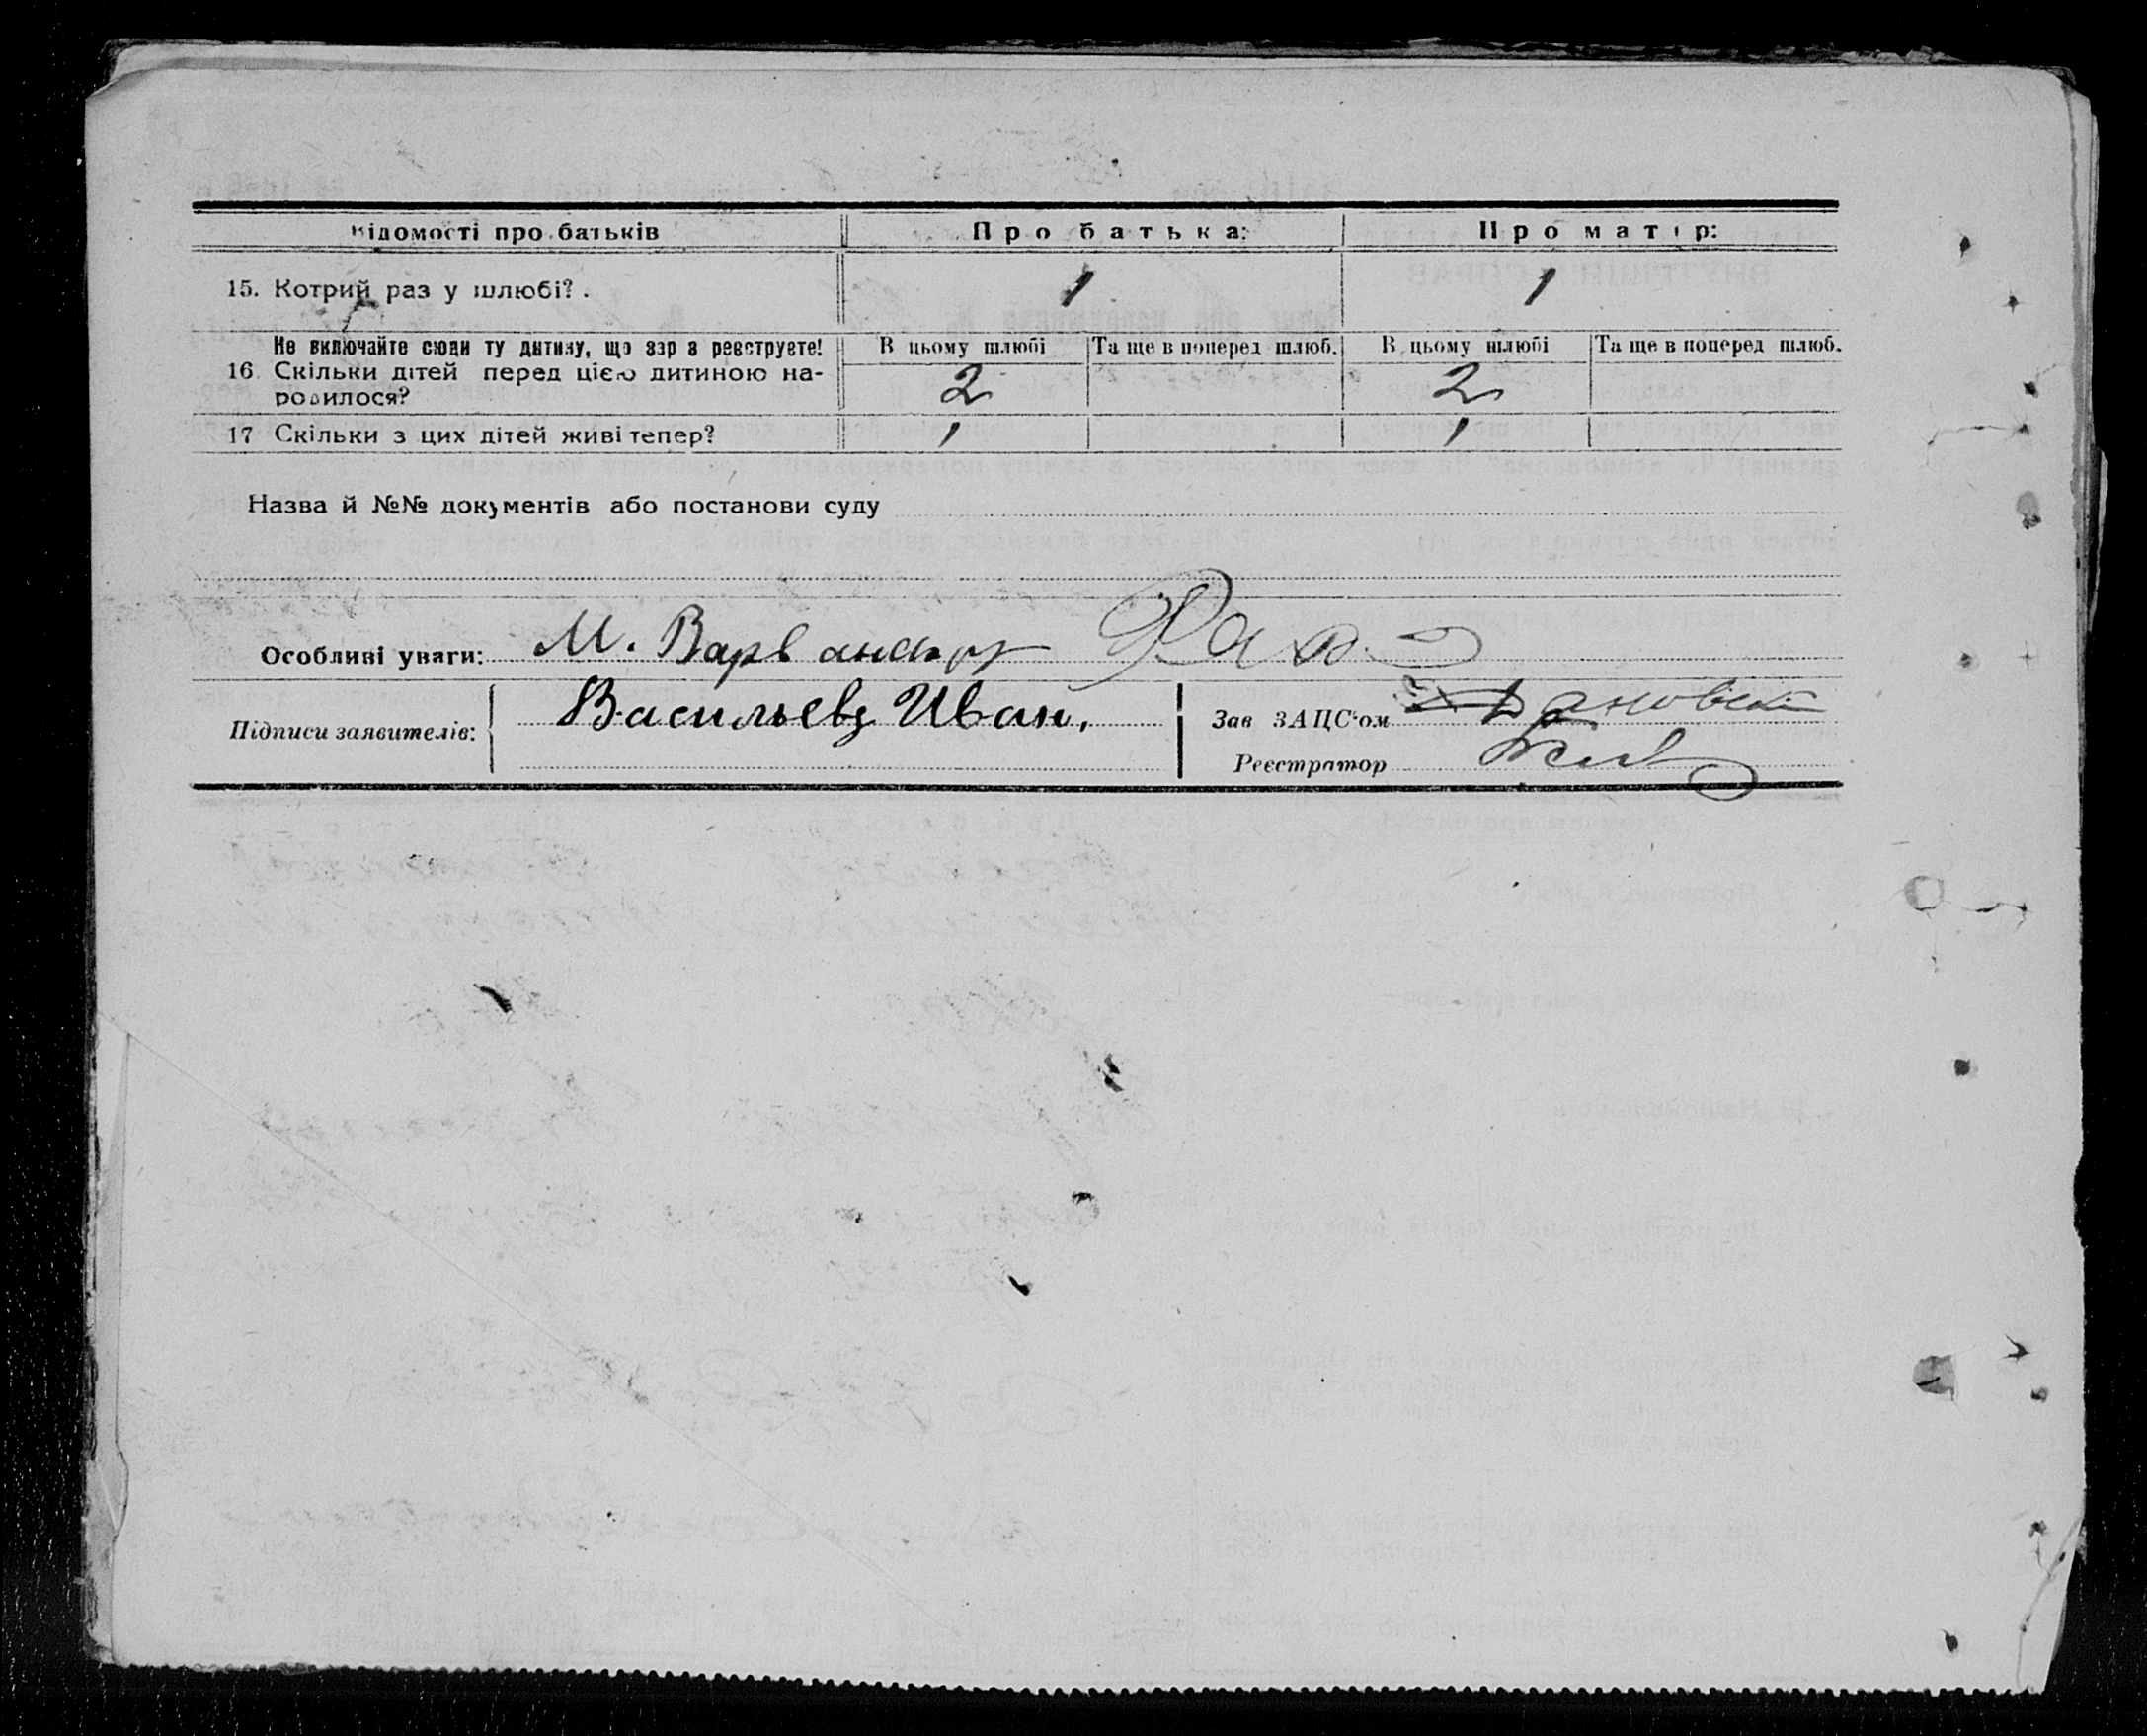 Відомості про батьків Про батька: Про матір:
15. Котрий раз у шлюбі? . 1 1
Не включайте сюди ту дитину, що зар з реєструєте! В цьому шлюбі Та ще в поперед шлюб. В цьому шлюбі Та ще в поперед шлюб.
16 Скільки дітей перед цією дитиною на- 2 2
родилося?
17 Скільки з цих дітей живі тепер? 1 1
Назва й №№ документів або постанови суду
Особливі уваги: М.
Підписи заявителів: Васильев Иван. Зав ЗАЦС'ом
Реєстратор